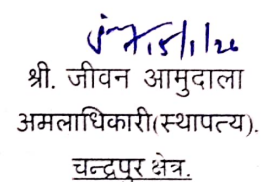 15/1/26
श्री. जीवन आमुदाला
अमलाधिकारी(स्थापत्य).
चन्द्रपुर क्षेत्र.